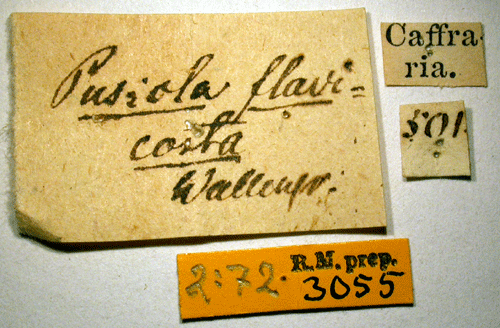 Pusiola flavi-
costa
Wallengr:
Caffra-
ria.
501.
2:72.
R.M. prep.
3055